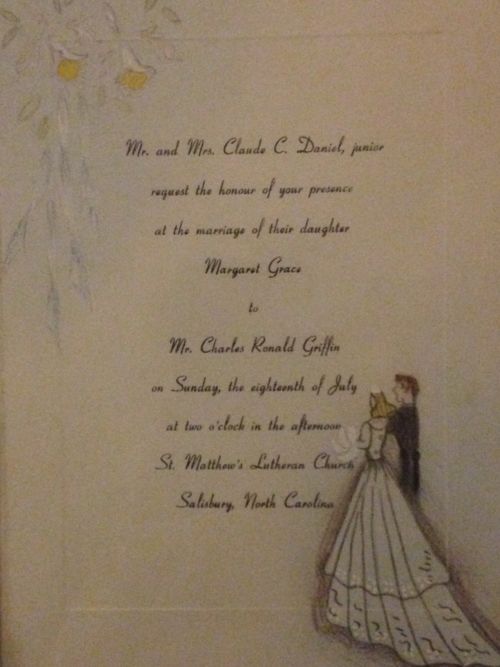 Mr. and Mrs. Claude C. Daniel, junior
request the honour of your presence
at the marriage of their daughter
Margaret Grace
to
Mr. Charles Ronald Griffin
on Sunday, the eighteenth of July
at two o'clock in the afternoon
St. Matthew's Lutheran Church
Salisbury, North Carolina